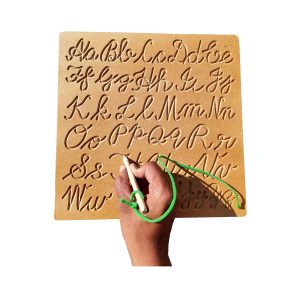 Aa Bb Cc Dd Ee
Ff Gg Hh Ii Jj
Kk Ll Mm Nn
Oo Pp Qq Rr
Ss
Ww